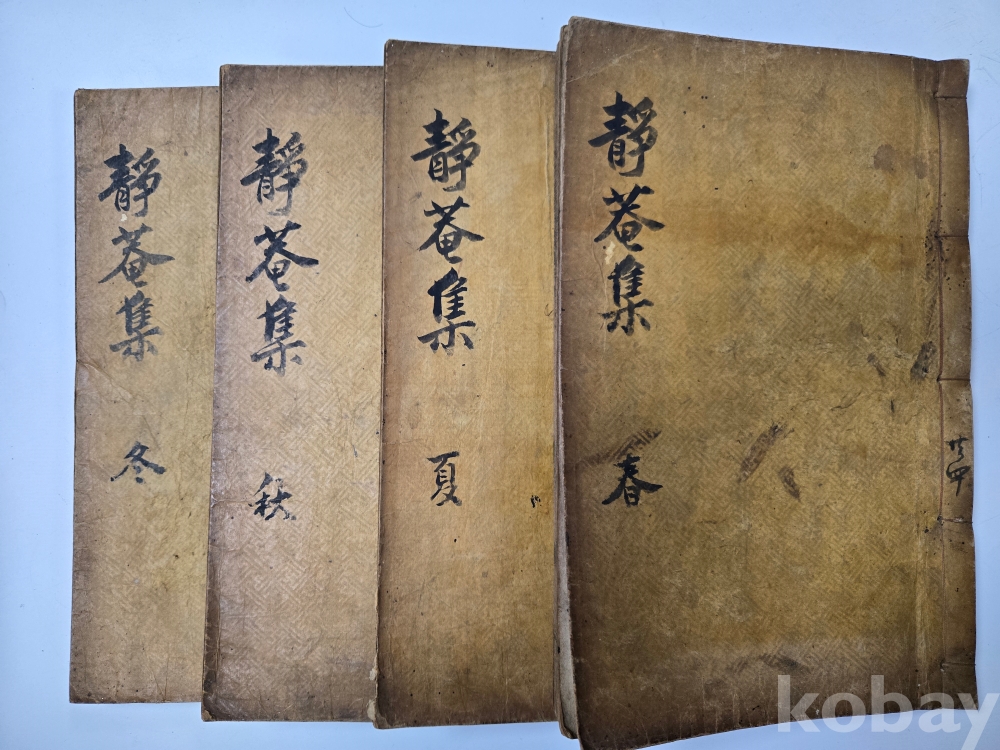 靜菴集
春
共四
靜菴集
夏
靜菴集
秋
靜菴集
冬
kobay